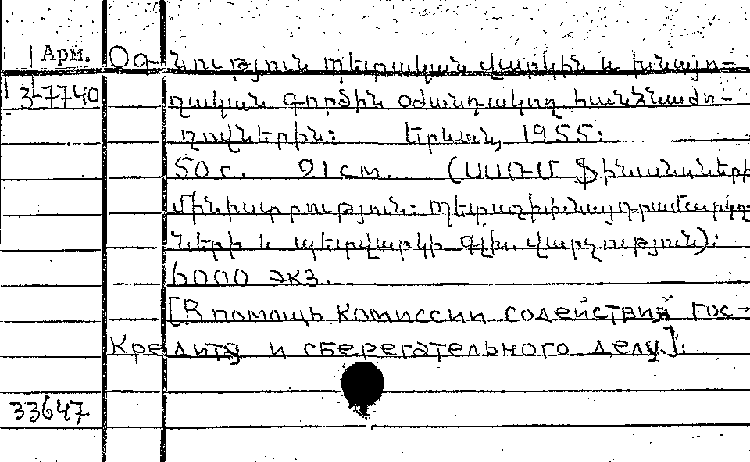 Арм. Օգնություն պետական վարկին և խնայո-
3-7740 ղական գործին օժանդակող հանձնաժո-
ղովներին: Երևան, 1955:
50 с. 21 см. (ՍՍՌՄ Ֆինանսների
մինիստրություն: Պետաշխխնայդրամարկղ-
ների և պետվարկի գլխ. վարչություն):
6000 экз.
[В помощь комиссии содействия гос-
кредиту и сберегательного делу].
33647